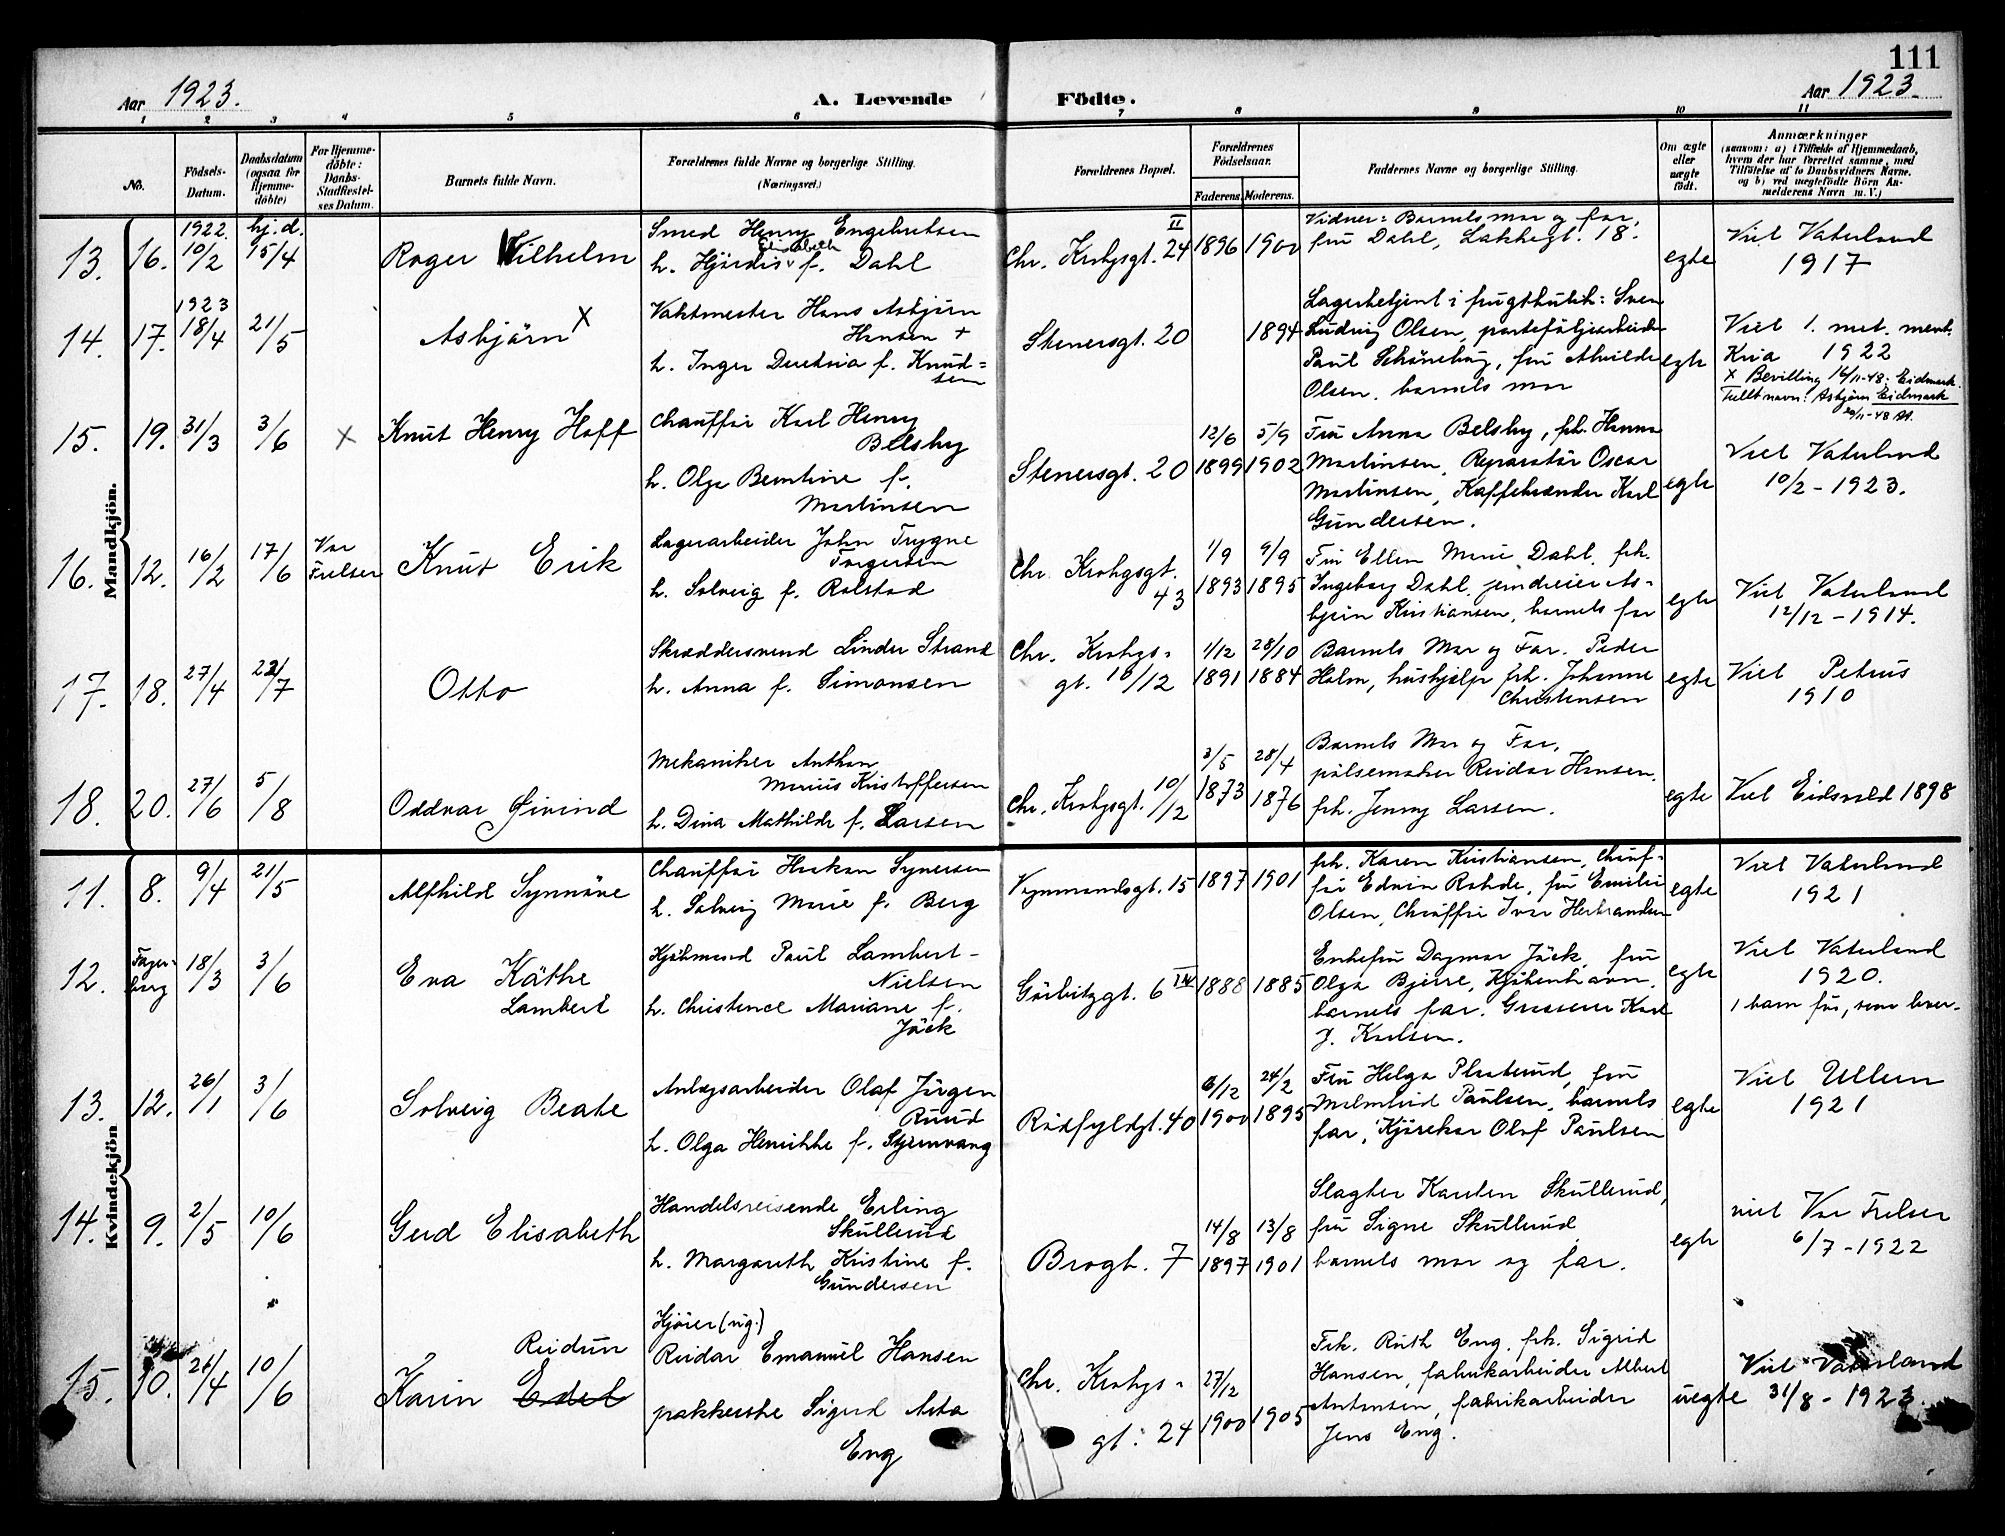 111
Aar 1923.
A. Levende Fødte.
Aar 1923.
1 2 3 4 5 6 7 8 9 10 11
No.
Fødsels-Datum.
Daabsdatum (ogsaa for Hjemme-døbte)
For Hjemme-døbte: Daabs-Stadfæstel-ses Datum.
Barnets fulde Navn.
Forældrenes fulde Navne og borgerlige Stilling. (Næringsvei.)
Forældrenes Bopæl.
Forældrenes Fødselsaar.
Faderens. Moderens.
Faddernes Navne og borgerlige Stilling.
Om ægte eller uægte født.
Anmærkninger
(saasom: a) i Tilfælde af Hjemmedaab,
hvem der har forrettet samme, med
Tilføielse af to Daabsvidners Navne.
og b) ved uægtefødte Børn An-
melderens Navn m. V.)
Mandkjøn.
13. 16. 1922 10/2 hj.d. 15/4
Roger Wilhelm
Smed Henny Engebretsen
h. Hjördis Elisabeth f. Dahl
Chr. Krohgsgt. 24 II
1896 1900
Vidner: Barnets mor og far,
fru Dahl, Lakkegt. 18.
egte
Viet Vaterland
1917
14. 17. 1923 18/4 21/5
Asbjörn X
Vaktmester Hans Asbjörn
Hansen +
h. Inger f. Knud=
sen
Stenersgt. 20
1894
Lagerbetjent i frugtbutik: Sven
Ludvig Olsen, porteföljearbeider
Paul fru Alvilde
Olsen, barnets mor
egte
Viet 1. met. ment.
Kria 1922
X Bevilling 16/11-48: Eidmark.
Fullt navn: Asbjörn Eidmark
15. 19. 31/3 3/6 X
Knut Henry Hoff
Chauffør Karl Henry
Belsby
h. Olga Berntine f.
Martinsen
Stenersgt. 20
12/6 1899 5/9 1902
Fru Anna Belsby, frk. Hanna
Martinsen, Reparatör Oscar
Martinsen, Kaffebrænder Karl
Gundersen.
egte
Viet Vaterland
10/2 - 1923.
16. 12. 16/2 17/6 Vor Frelser
Knut Erik
Lagerarbeider John Trygve
Torgersen
h. Solveig f. Rolstad
Chr. Krohgsgt.
43
1/9 1893 9/9 1895
Fru Ellen Marie Dahl, frk.
Ingeborg Dahl, As-
bjørn Kristiansen, barnets far
egte
Viet Vaterland
12/12 - 1914.
17. 18. 27/4 22/7
Otto
Skreddersvend Linder Strand
h. Anna f. Simonsen
Chr. Krohgs-
gt. 10/12
1/12 1891 28/10 1884
Barnets Mor og Far. Peder
Holm, hushjelp frk. Johanne
Christensen
egte
Viet Petrus
1910
18. 20. 27/6 5/8
Oddvar Øivind
Mekaniker Anthon
Marius Kristoffersen
h. Dina Mathilde f. Larsen
Chr. Krohgsgt. 10/12
3/5 1873 28/4 1876
Barnets Mor og Far,
pølsemaker Reidar Hansen,
frk. Jenny Larsen.
egte
Viet Eidsvold 1898
Kvindekjøn
11. 8. 9/4 21/5
Alfhild Synnöve
Chauffør Haakon Syversen
h. Solveig Marie f. Berg
Vognmandsgt. 15
1897 1901
frk. Karen Kristiansen, Chauf-
før Edvin Rohde, fru Emilie
Olsen, Chauffør Ivar Herbrandsen
egte
Viet Vaterland
1921
12. Fager-borg 18/3 3/6
Eva Käthe
Lambert
Kjøbmand Paul Lambert-
Nielsen
h. Christence Mariane f.
Jäck
Görbitzgt. 6 IV
1888 1885
Enkefru Dagmar Jäck, fru
Olga Bjerre, Kjøbenhavn,
barnets far, Grosserer Karl
J. Karlsen.
egte
Viet Vaterland
1920.
1 barn før, som lever.
13. 12. 26/1 3/6
Solveig Beate
Anlægsarbeider Olaf Jørgen
Ruud
h. Olga Henrikke f.
Rödfyldgt. 40
6/12 1900 24/2 1895
Fru Helga fru
Paulsen, barnets
far, Kjörekar Olaf Paulsen
egte
Viet Ullern
1921
14. 9. 2/5 10/6
Gerd Elisabeth
Handelsreisende Erling
Skullerud
h. Margareth Kristine f.
Gundersen
Brogt. 7
14/8 1897 13/8 1901
Slagter Karsten Skullerud,
fru Signe Skullerud
barnets mor og far.
egte
viet Vor Frelser
6/7 - 1922
15. 10. 26/4 10/6
Reidun
Karin Edel
Kjører (ug.)
Reidar Emanuel Hansen
pakkerske Sigrid Asta
Eng
Chr. Krohgs-
gt. 24
27/12 1900 1905
Frk. Ruth Eng, frk. Sigrid
Hansen, fabrikarbeider Albert
Antonsen, fabrikarbeider
Jens Eng.
uegte
Viet Vaterland
31/8 - 1923.